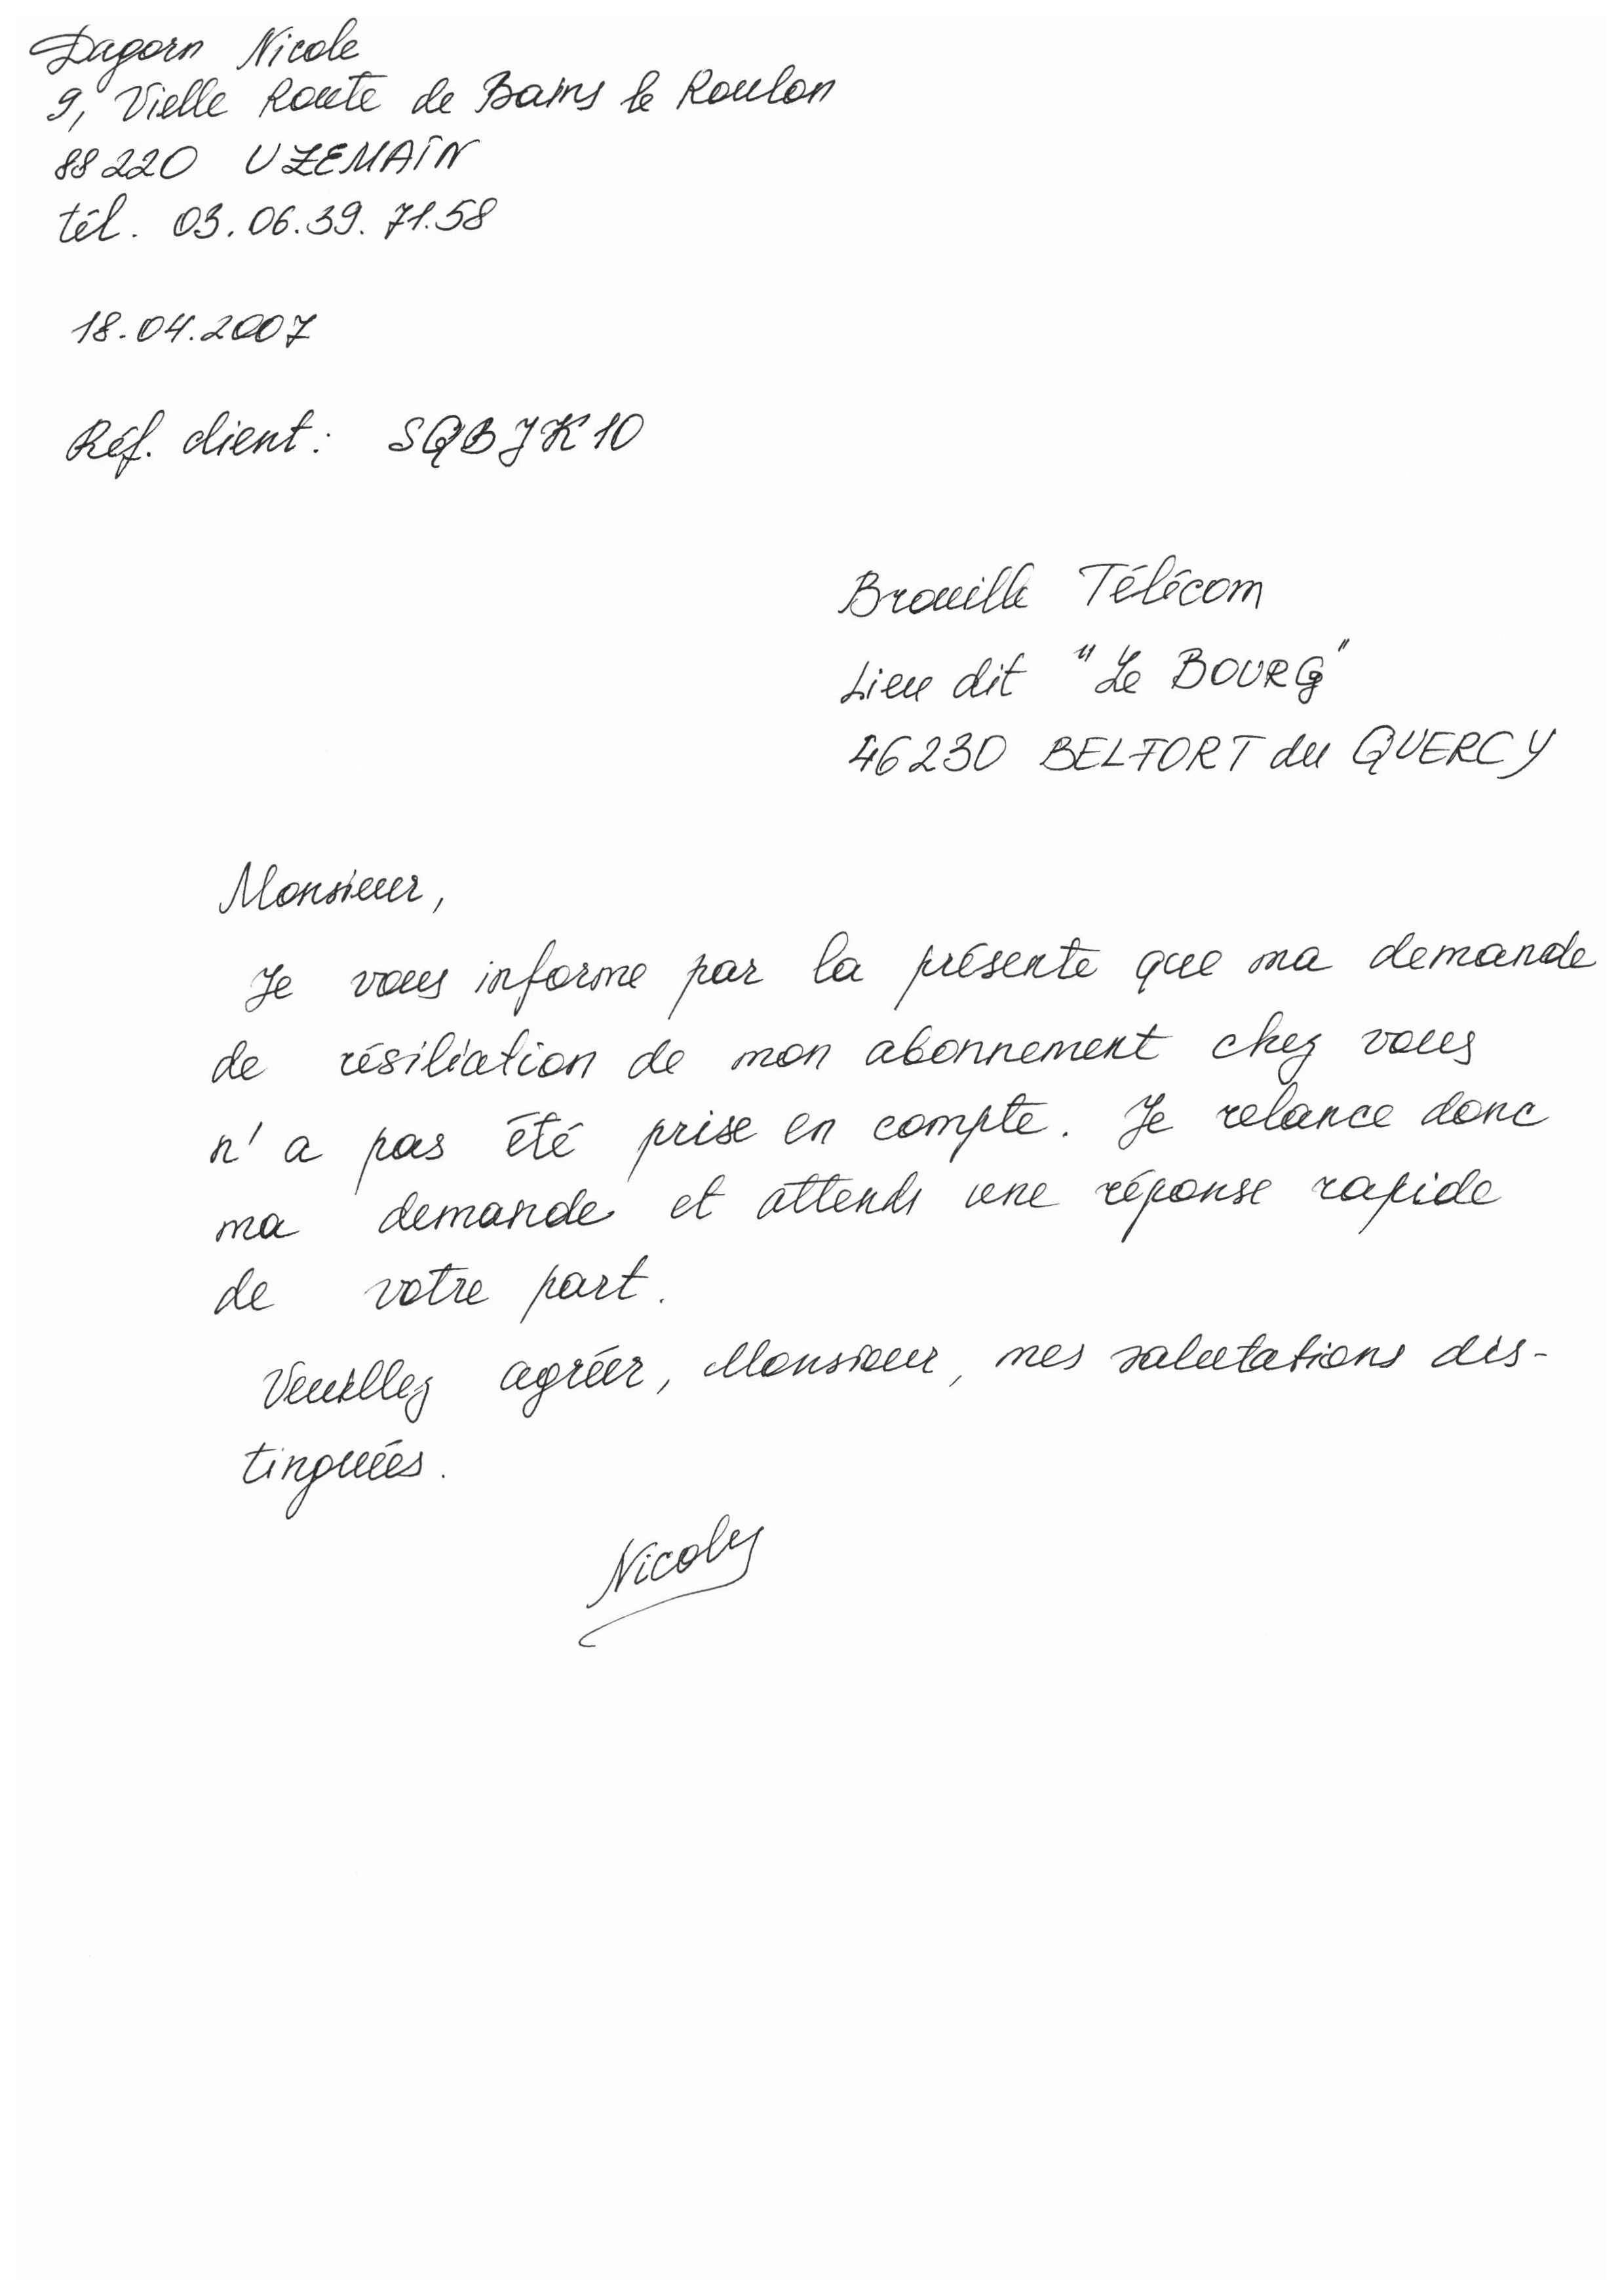 Dagorn Nicole
9, Vielle Route de Bains le Roulon
88220 UZEMAÏN
tél. 03.06.39.71.58
18.04.2007
Réf. client: SQBJK10
Brouille Télécom
Lieu dit "Le BOURG"
46230 BELFORT du QUERCY
Monsieur,
Je vous informe par la présente que ma demande
de résiliation de mon abonnement chez vous
n'a pas été prise en compte. Je relance donc
ma demande et attends une réponse rapide
de votre part.
Veuillez agréer, Monsieur, mes salutations dis-
tinguées.